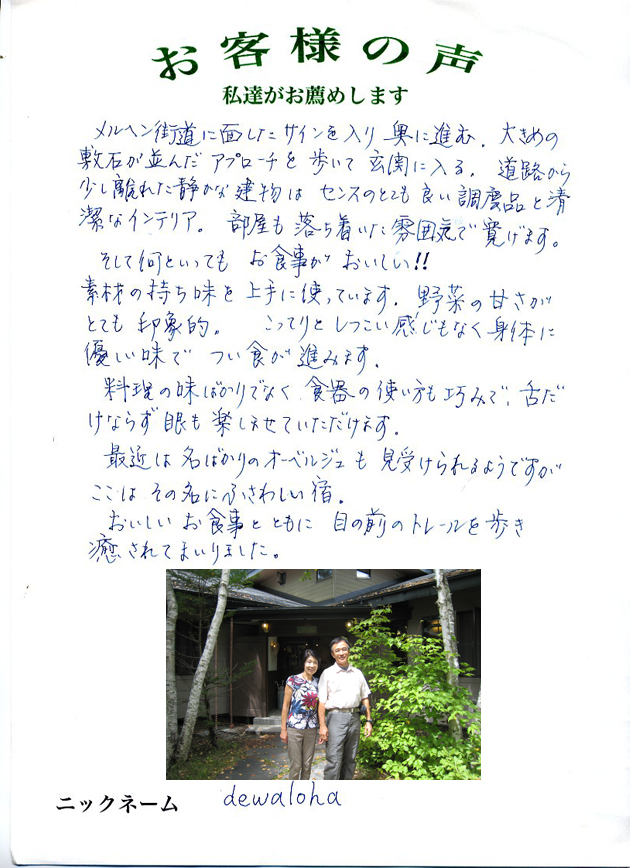 お客様の声
私達がお薦めします
メルヘン街道に面したサインを入り奥に進む。大きめの
敷石が並んだアプローチを歩いて玄関に入る。道路から
少し離れた静かな建物はセンスのとても良い調度品と清
潔なインテリア。部屋も落ち着いた雰囲気で寛げます。
そして何といってもお食事がおいしい!!
素材の持ち味を上手に使っています。野菜の甘さが
とても印象的。こってりとしつこい感じもなく身体に
優しい味でつい食が進みます。
料理の味ばかりでなく食器の使い方も巧みで、舌だ
けならず眼も楽しませていただけます。
最近は名ばかりのオーベルジュも見受けられるようですが
ここはその名にふさわしい宿。
おいしいお食事とともに目の前のトレールを歩き
癒されてまいりました。
ニックネーム dewaloha